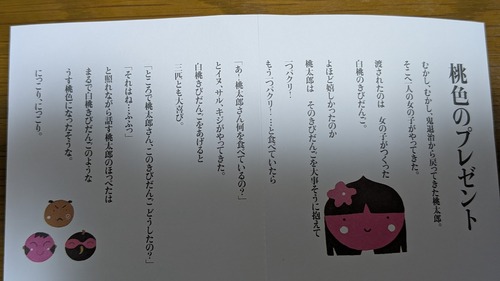 桃色のプレゼント
むかし、むかし、鬼退治から戻ってきた桃太郎。
そこへ、一人の女の子がやってきた。
渡されたのは 女の子がつくった
白桃のきびだんご。
よほど嬉しかったのか
桃太郎は そのきびだんごを大事そうに抱えて
一つパクリ…
もう一つパクリ……と食べていたら
「あ、桃太郎さん何を食べているの?」
とイヌ、サル、キジがやってきた。
白桃きびだんごをあげると
三匹とも大喜び。
「ところで桃太郎さん、このきびだんごどうしたの?」
「それはね…ふふっ」
と照れながら話す桃太郎のほっぺたは
まるで白桃きびだんごのような
うす桃色になったそうな。
にっこり、にっこり。